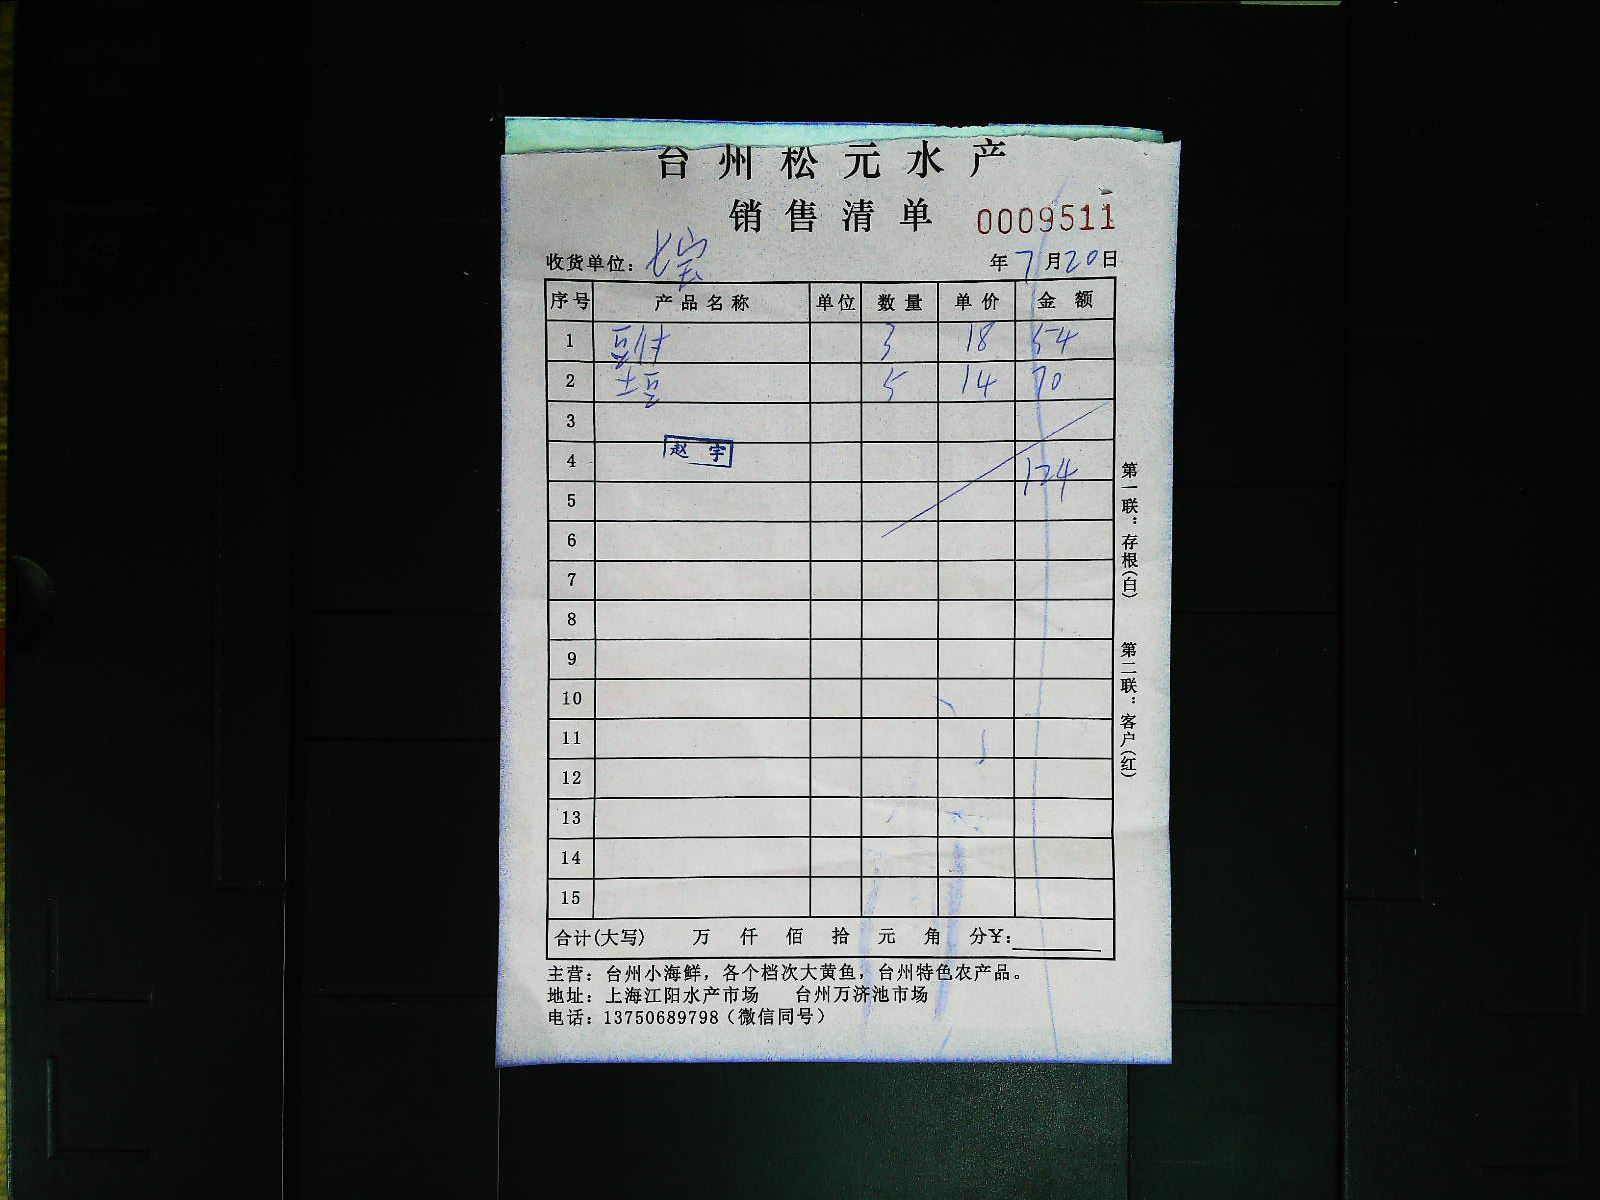 台州松元水产
销售清单 0009511
收货单位：七宝 年7月20日
序号 产品名称 单位 数量 单价 金额
1 豆付 3 18 54
2 土豆 5 14 70
3
4 赵宇 124
5
6
7
8
9
10
11
12
13
14
15
合计(大写) 万 仟 佰 拾 元 角 分¥：
主营：台州小海鲜，各个档次大黄鱼，台州特色农产品。
地址：上海江阳水产市场 台州万济池市场
电话：13750689798（微信同号）
第一联：存根(白)
第二联：客户(红)